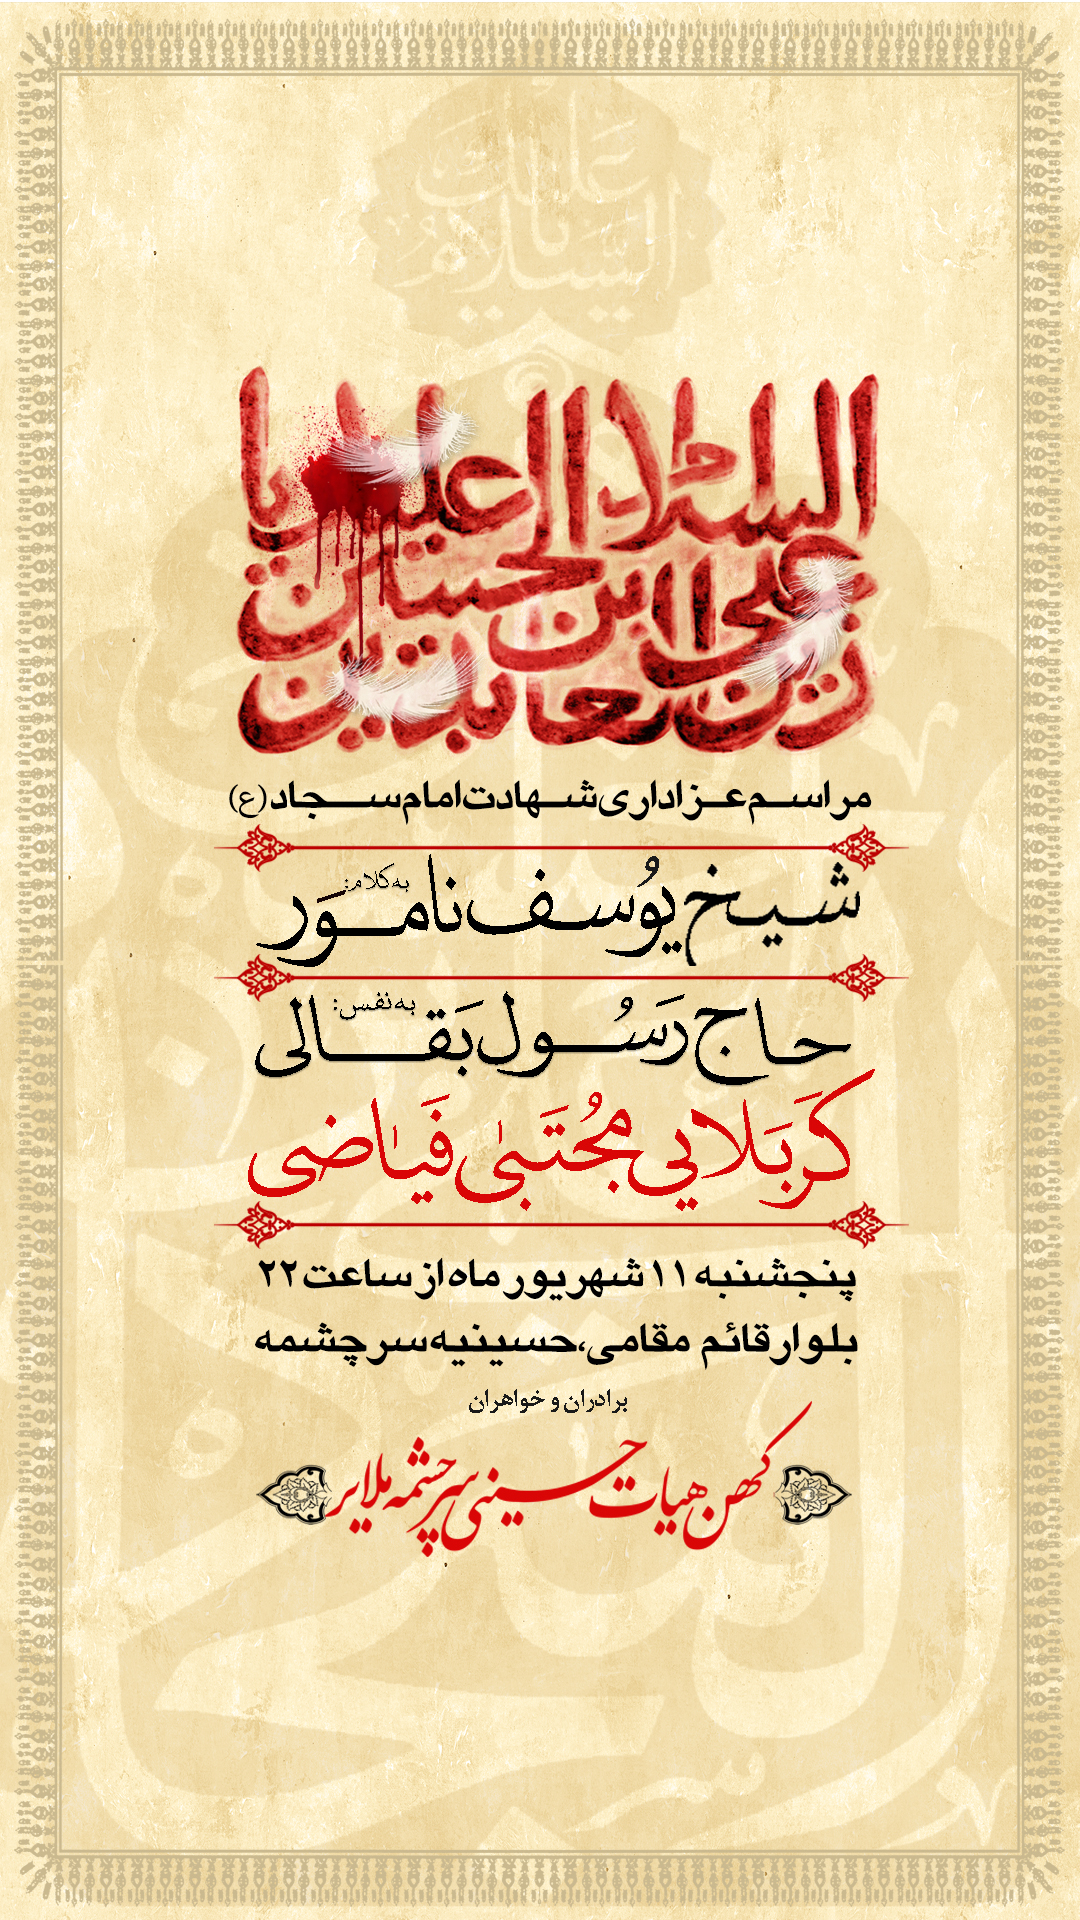 علیه
السلام
السلام علیک یا
علی ابن الحسین
زین العابدین
مراسم عزاداری شهادت امام سجاد (ع)
به کلام:
شیخ یوُسف ناموَر
به نفس:
حاج رَسُول بَقالی
کَربَلایی مُجتَبیٰ فَیاضی
پنجشنبه ۱۱ شهریور ماه از ساعت ۲۲
بلوار قائم مقامی، حسینیه سرچشمه
برادران و خواهران
کهن هیات حسینی سرچشمه ملایر